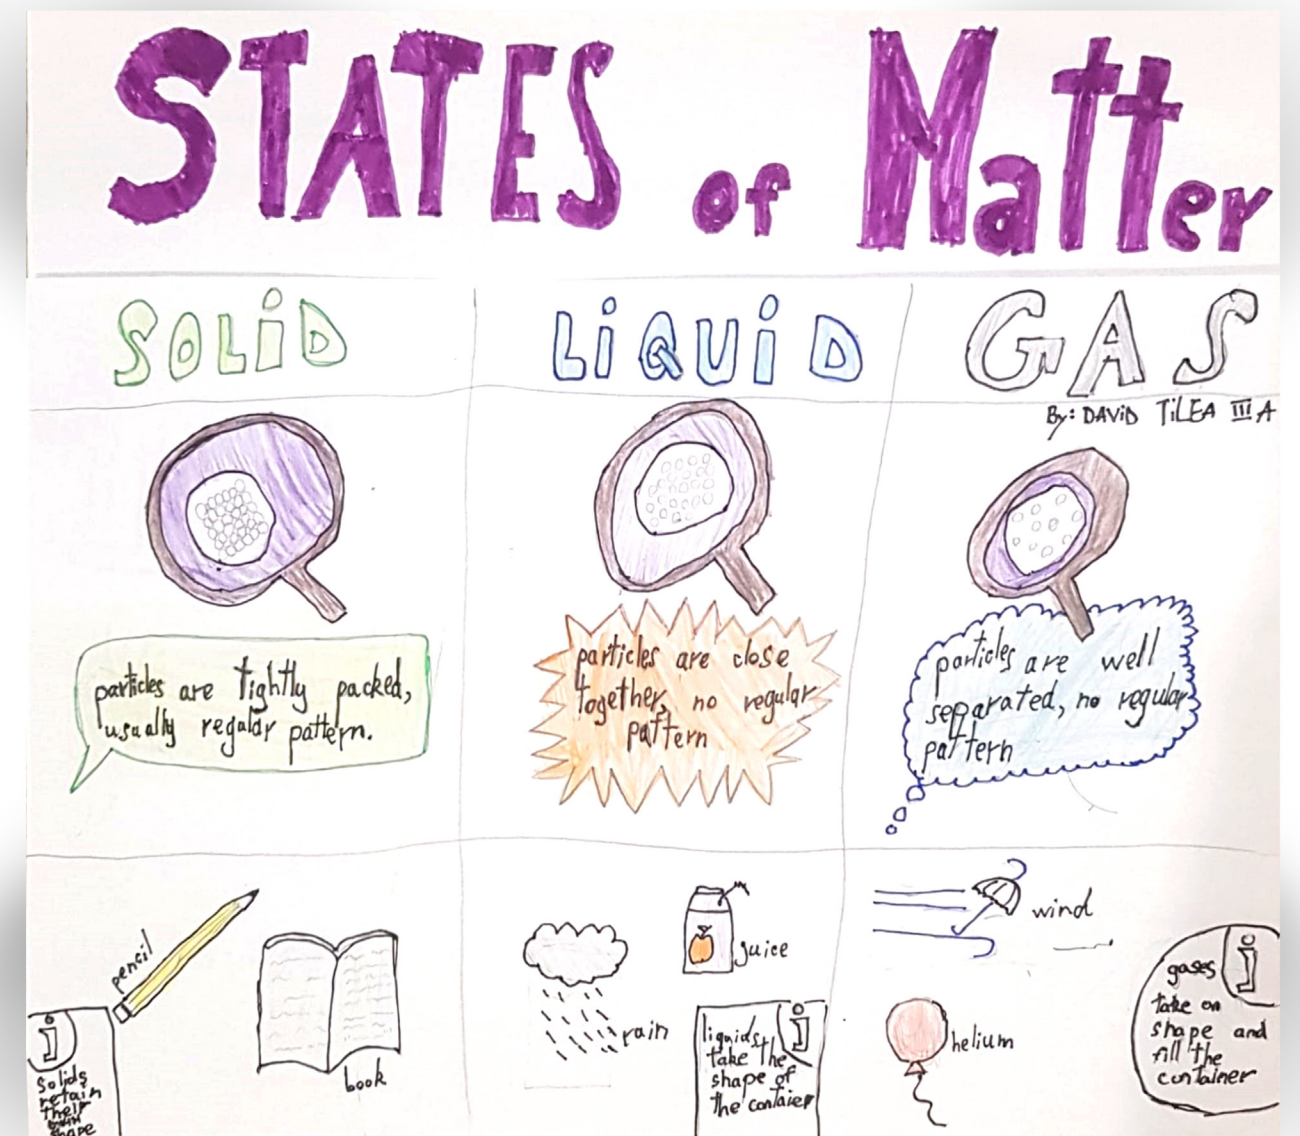 STATES of Matter
SOLiD
LiQUiD
GAS
By: DAViD TiLEA III A
particles are tightly packed,
usually regular pattern.
particles are close
together, no regular
pattern
particles are well
separated, no regular
pattern
pencil
book
i
Solids
retain
their
shape
rain
juice
i
liquids
take the
shape of
the contaier
wind
helium
i
gases
take on
shape and
fill the
container